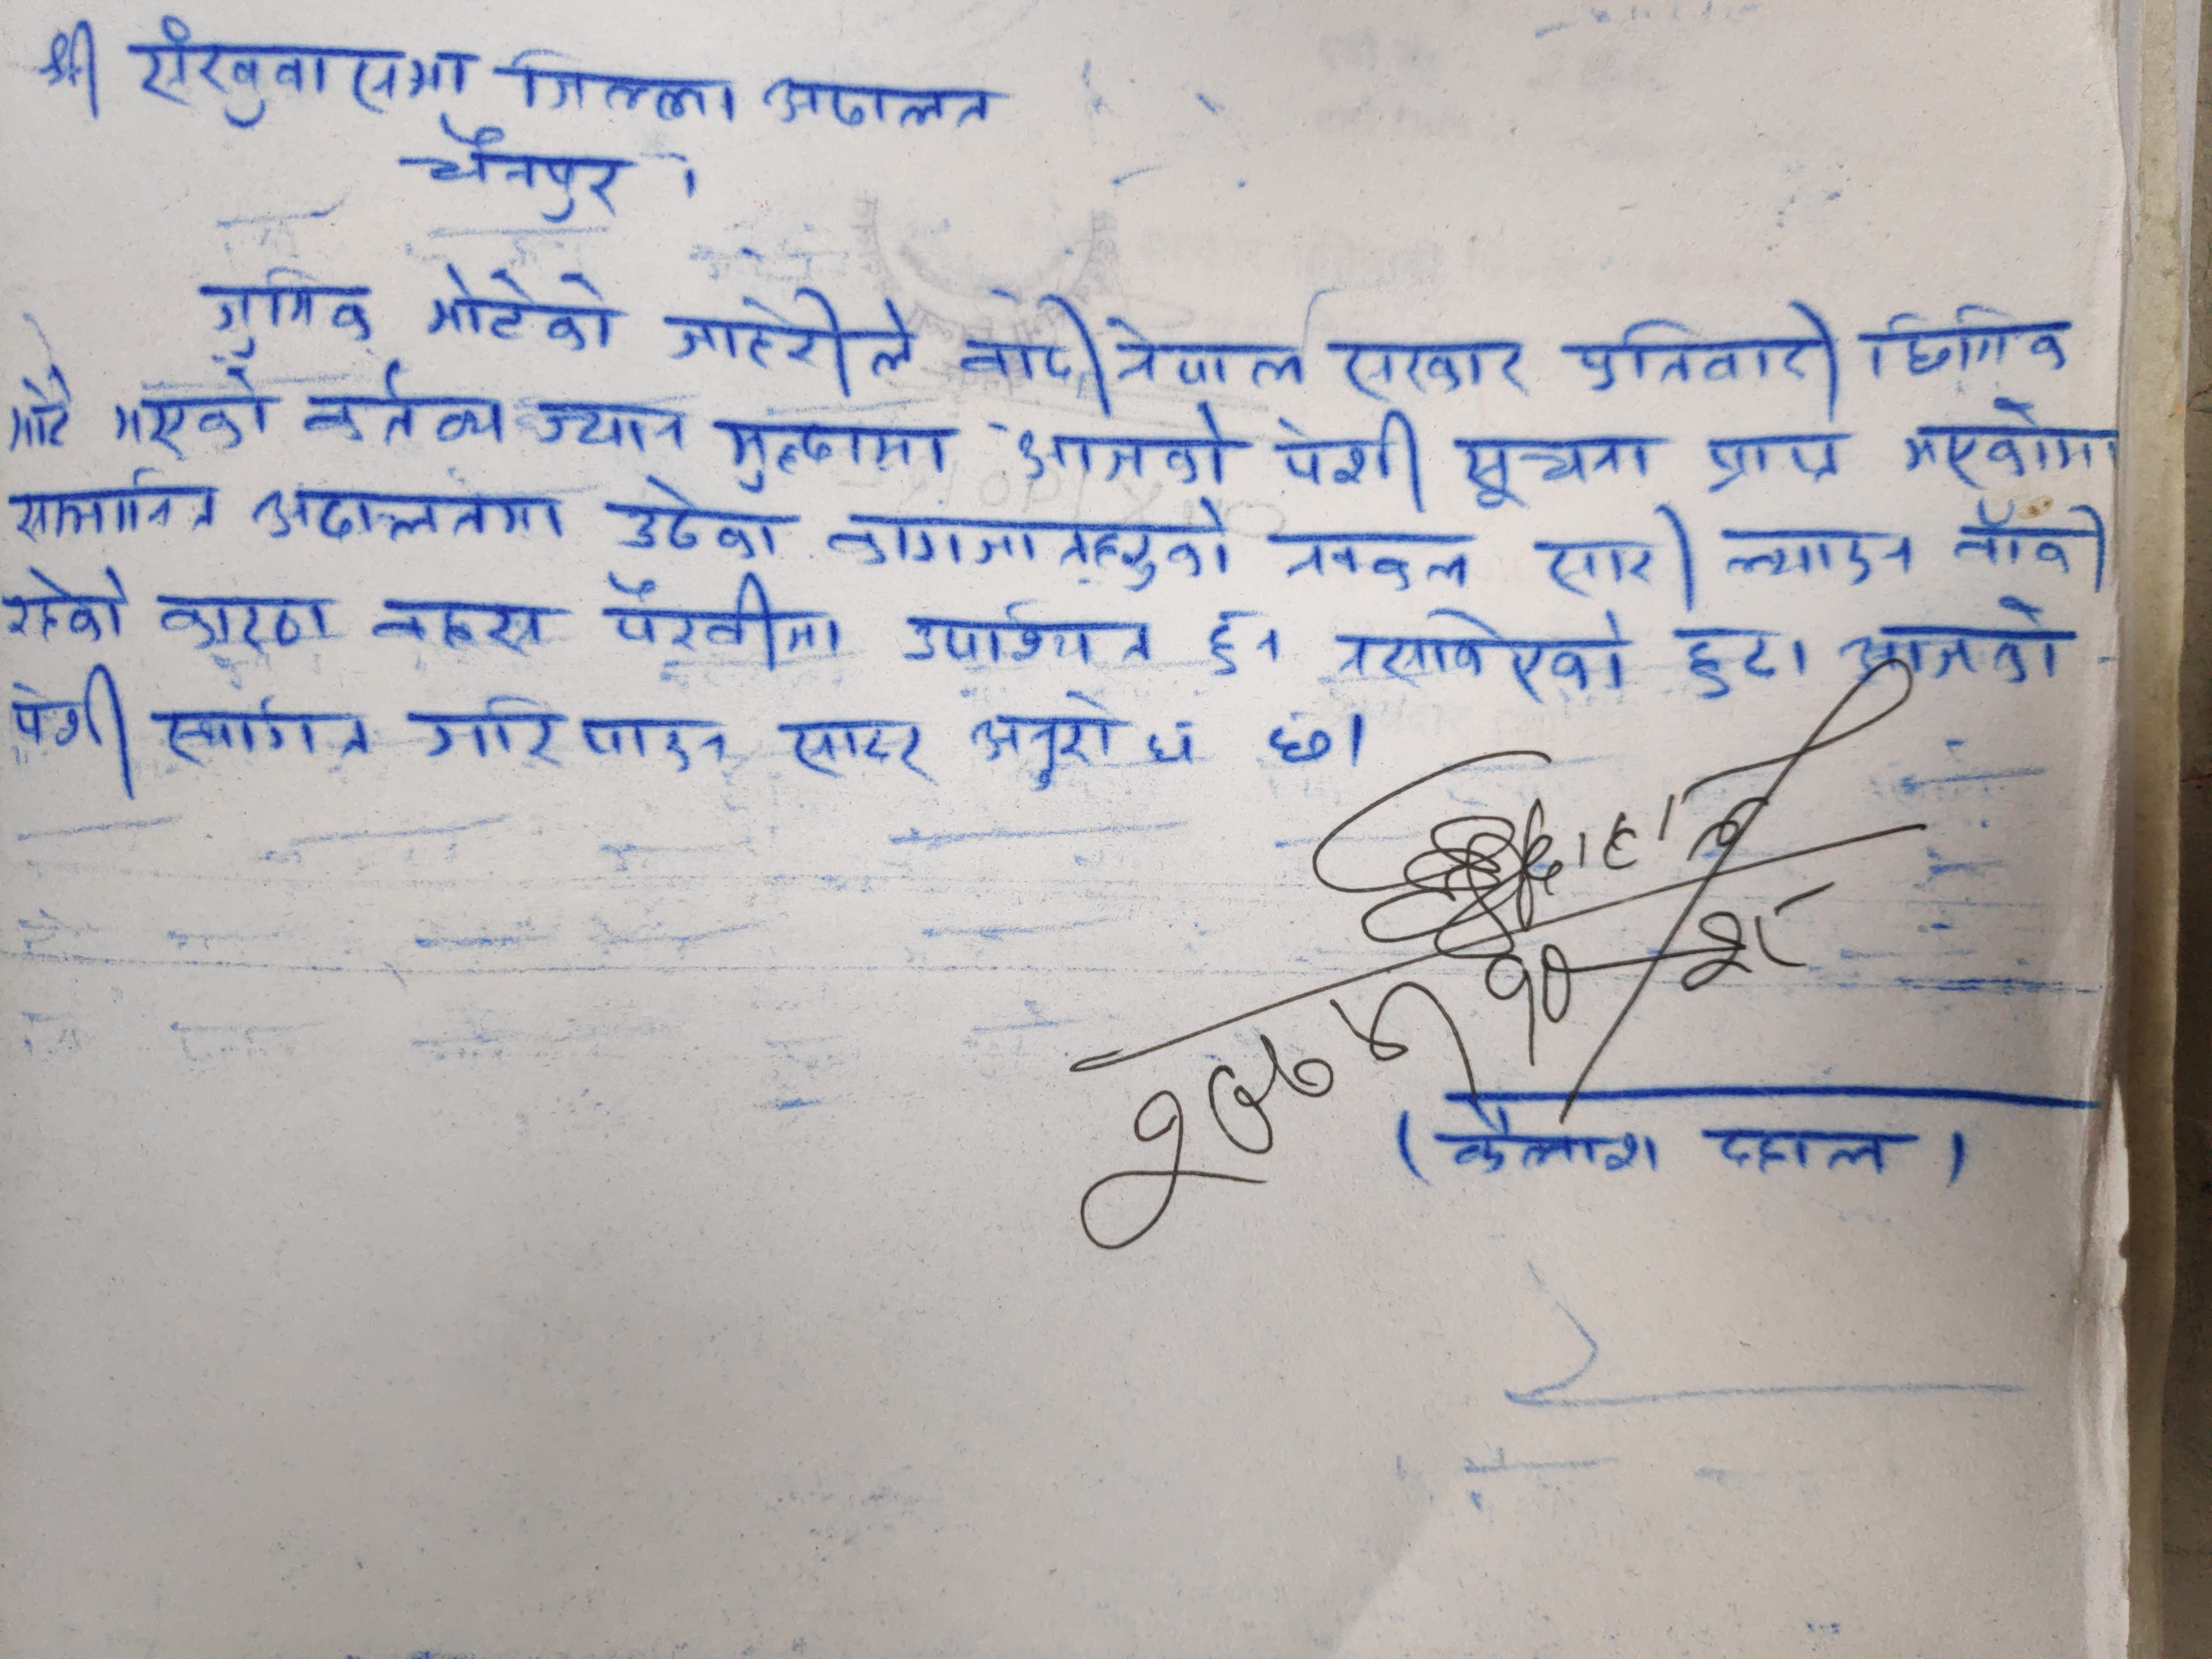 श्री संखुवासभा जिल्ला अदालत
चैनपुर ।
ग्रुमिक भोटेको जाहेरीले वादी नेपाल सरकार प्रतिवादी छिमिक
भोटे भएको कर्तव्य ज्यान मुद्दामा आजको पेशी सूचना प्राप्त भएकोमा
सम्मानित अदालतमा उठेका कागजातहरुको नक्कल सारी ल्याउन बाँकी
रहेको कारण बहस पैरवीमा उपस्थित हुन नसकिएको हुदा आजको
पेशी स्थगित गरिपाउन सादर अनुरोध छ।
दाहाल
(कैलाश दाहाल)